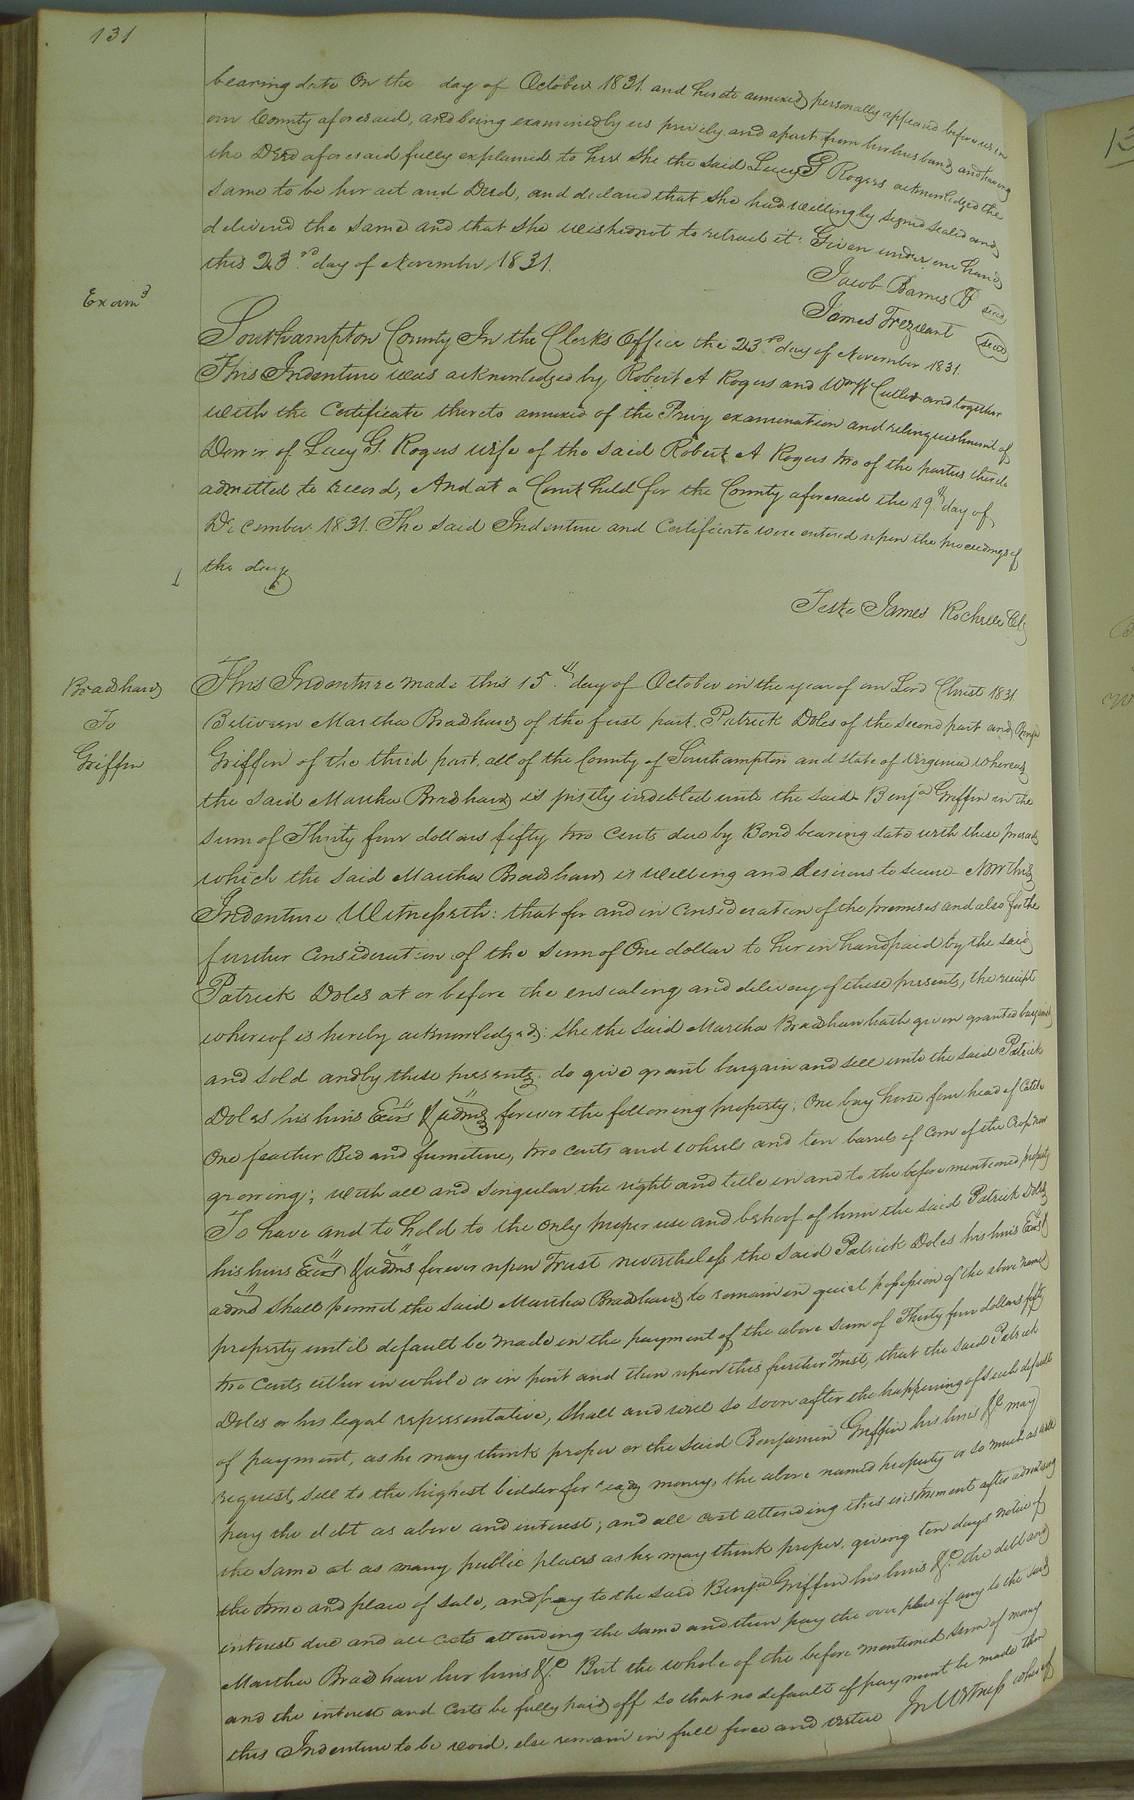 131
bearing date on the day of October 1831 and hereto annexed personally appeared before us in
our County aforesaid, and being examined by us privily and apart from her husband and having
the Deed aforesaid fully explained to her she the said Lucy G Rogers acknowledged the
same to be her act and Deed, and declared that she had willingly signed sealed and
delivered the same and that she wished not to retract it. Given under our hands
this 23rd day of November 1831.
Jacob Barnes seal
Exam^d
James Trezvant seal
Southampton County In the Clerks Office the 23rd day of November 1831.
This Indenture was acknowledged by Robert A Rogers and Wm H Cutler and together
with the Certificate thereto annexed of the Privy examination and relinquishment of
Dower of Lucy G. Rogers wife of the said Robert A Rogers two of the parties thereto
admitted to record, And at a Court held for the County aforesaid the 19th day of
December 1831. The said Indenture and Certificate were entered upon the proceedings of
the day
Teste James Rochelle Clk
Bradshaw
To
Griffin
This Indenture made this 15th day of October in the year of our Lord Christ 1831
Between Martha Bradshaw of the first part, Patrick Doles of the second part and Benja
Griffin of the third part, all of the County of Southampton and state of Virginia whereas
the said Martha Bradshaw is justly indebted unto the said Benja Griffin in the
sum of Thirty four dollars fifty two cents due by Bond bearing date with these presents
which the said Martha Bradshaw is willing and desirous to secure Now this
Indenture Witnesseth: that for and in consideration of the premises and also for the
further consideration of the sum of One dollar to her in hand paid by the said
Patrick Doles at or before the ensealing and delivery of these presents, the receipt
whereof is hereby acknowledged; she the said Martha Bradshaw hath given granted bargained
and sold and by these presents do give grant bargain and sell unto the said Patrick
Doles his heirs Exōrs & adms forever the following property; One bay horse four head of Cattle
One feather Bed and furniture, two carts and wheels and ten barrels of Corn of the Crop now
growing; with all and singular the right and title in and to the before mentioned property
To have and to hold to the only proper use and behoof of him the said Patrick Doles
his heirs Exōrs & adms forever upon Trust nevertheless the said Patrick Doles his heirs Exōrs &
adms shall permit the said Martha Bradshaw to remain in quiet possession of the above named
property until default be made in the payment of the above sum of Thirty four dollars fifty
two cents either in whole or in part and then upon this further Trust, that the said Patrick
Doles or his legal representative, shall and will so soon after the happening of such default
of payment, as he may think proper or the said Benjamin Griffin his heirs &c may
request, sell to the highest bidder for ready money, the above named property or so much as will
pay the debt as above and interest; and all cost attending this instrument after advertising
the same at as many public places as he may think proper, giving ten days notice of
the time and place of sale, and pay to the said Benja Griffin his heirs &c the debt and
interest due and all costs attending the same and then pay the over plus if any to the said
Martha Bradshaw her heirs &c But the whole of the before mentioned sum of money
and the interest and costs be fully paid off so that no default of payment be made then
this Indenture to be void, else remain in full force and virtue In Witness whereof